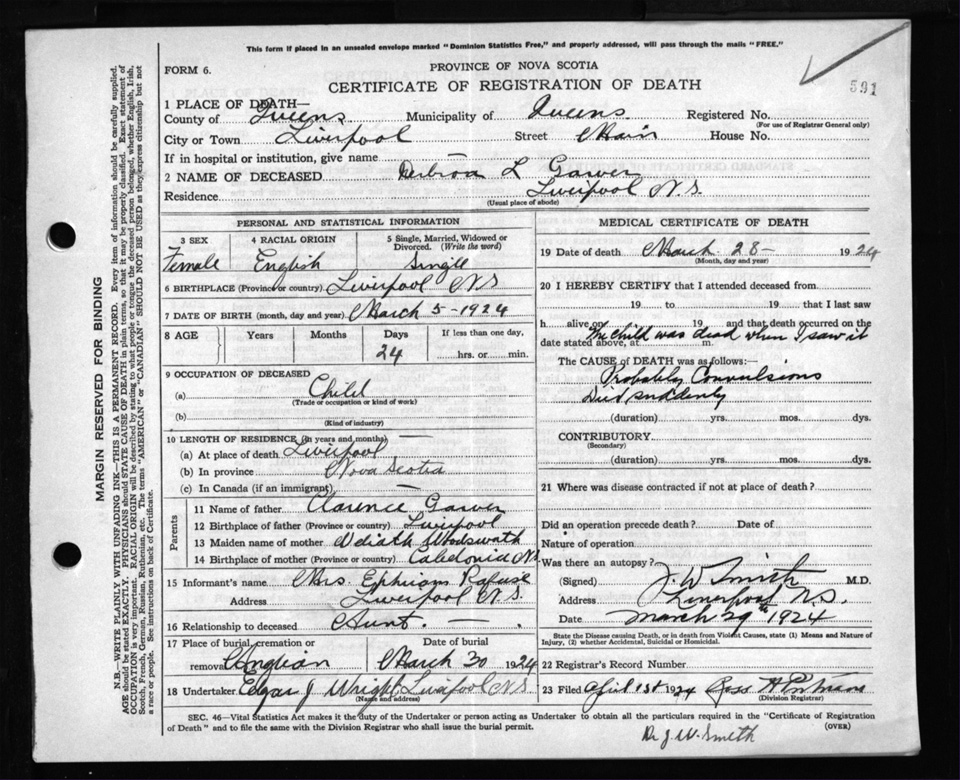 This form if placed in an unsealed envelope marked "Dominion Statistics Free," and properly addressed, will pass through the mails "FREE."
FORM 6.
PROVINCE OF NOVA SCOTIA
CERTIFICATE OF REGISTRATION OF DEATH
591
1 PLACE OF DEATH—
County of Queens Municipality of Queens Registered No.
(For use of Registrar General only)
City or Town Liverpool Street Main House No.
If in hospital or institution, give name
2 NAME OF DECEASED L
Residence Liverpool N.S.
(Usual place of abode)
PERSONAL AND STATISTICAL INFORMATION
3 SEX 4 RACIAL ORIGIN 5 Single, Married, Widowed or Divorced. (Write the word)
Female English Singel
6 BIRTHPLACE (Province or country) Liverpool N S
7 DATE OF BIRTH (month, day and year) March 5-1924
8 AGE Years Months Days If less than one day,
24 hrs. or min.
9 OCCUPATION OF DECEASED
(a) Child
(Trade or occupation or kind of work)
(b)
(Kind of industry)
10 LENGTH OF RESIDENCE (in years and months) —
(a) At place of death Liverpool
(b) In province Nova Scotia
(c) In Canada (if an immigrant) —
Parents
11 Name of father Clarence
12 Birthplace of father (Province or country) Liverpool
13 Maiden name of mother
14 Birthplace of mother (Province or country) Caledonia N S
15 Informant's name Mrs. Ephriam Rafuse
Address Liverpool N.S.
16 Relationship to deceased Aunt. —
17 Place of burial, cremation or removal Date of burial
March 30 1924
18 Undertaker Edgar J Wright Liverpool N S
(Name and address)
MEDICAL CERTIFICATE OF DEATH
19 Date of death March 28- 1924
(Month, day and year)
20 I HEREBY CERTIFY that I attended deceased from
19 to 19 that I last saw
h alive on 19 and that death occurred on the
The child was dead when I saw it
date stated above, at m.
The CAUSE of DEATH was as follows:—
Probably Convulsions
Died suddenly
(duration) yrs. mos. dys.
CONTRIBUTORY
(Secondary)
(duration) yrs. mos. dys.
21 Where was disease contracted if not at place of death?
Did an operation precede death? Date of
Nature of operation
Was there an autopsy?
(Signed) J. W. Smith M.D.
Address Liverpool N.S.
Date March 29th 1924
State the Disease causing Death, or in death from Violent Causes, state (1) Means and Nature of Injury, (2) whether Accidental, Suicidal or Homicidal.
22 Registrar's Record Number
23 Filed April 1st 1924 Ross H
(Division Registrar)
SEC. 46—Vital Statistics Act makes it the duty of the Undertaker or person acting as Undertaker to obtain all the particulars required in the "Certificate of Registration
of Death" and to file the same with the Division Registrar who shall issue the burial permit.
(OVER)
Dr J. W. Smith
MARGIN RESERVED FOR BINDING
N.B.—WRITE PLAINLY WITH UNFADING INK—THIS IS A PERMANENT RECORD. Every item of information should be carefully supplied.
AGE should be stated EXACTLY. PHYSICIANS should STATE CAUSE OF DEATH in plain terms, so that it may be properly classified. Exact statement of
OCCUPATION is very important. RACIAL ORIGIN will be described by stating to what people or tongue the deceased person belonged, whether English, Irish,
Scotch, French, German, Russian, Ruthenian, etc. The terms "AMERICAN" or "CANADIAN" SHOULD NOT BE USED as they express citizenship but not
a race or people. See instructions on back of Certificate.